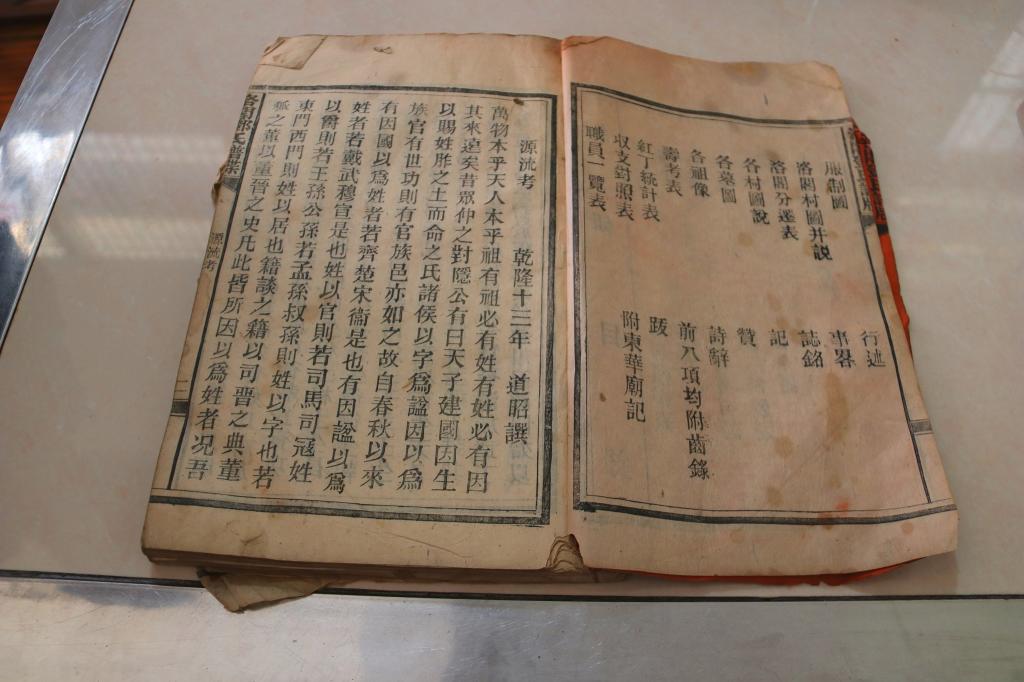 服制圖
洛閣村圖并說
洛閣分遷表
各村圖說
各墓圖
各祖像
壽考表
紅丁統計表
收支對照表
職員一覽表
行述
事畧
誌銘
記
贊
詩辭
前八項均附齒錄
跋
附東華廟記
源流考 乾隆十三年 道昭譔
萬物本乎天人本乎祖有祖必有姓有姓必有因
其來遠矣昔眾仲之對隱公有曰天子建國因生
以賜姓胙之土而命之氏諸侯以字爲諡因以爲
族官有世功則有官族邑亦如之故自春秋以來
有因國以爲姓者若齊楚宋衞是也有因諡以爲
姓者若戴武穆宣是也姓以官則若司馬司寇姓
以爵則若王孫公孫若孟孫叔孫則姓以字也若
東門西門則姓以居也籍談之籍以司晋之典董
狐之董以董晉之史凡此皆所因以爲姓者况吾
源流考